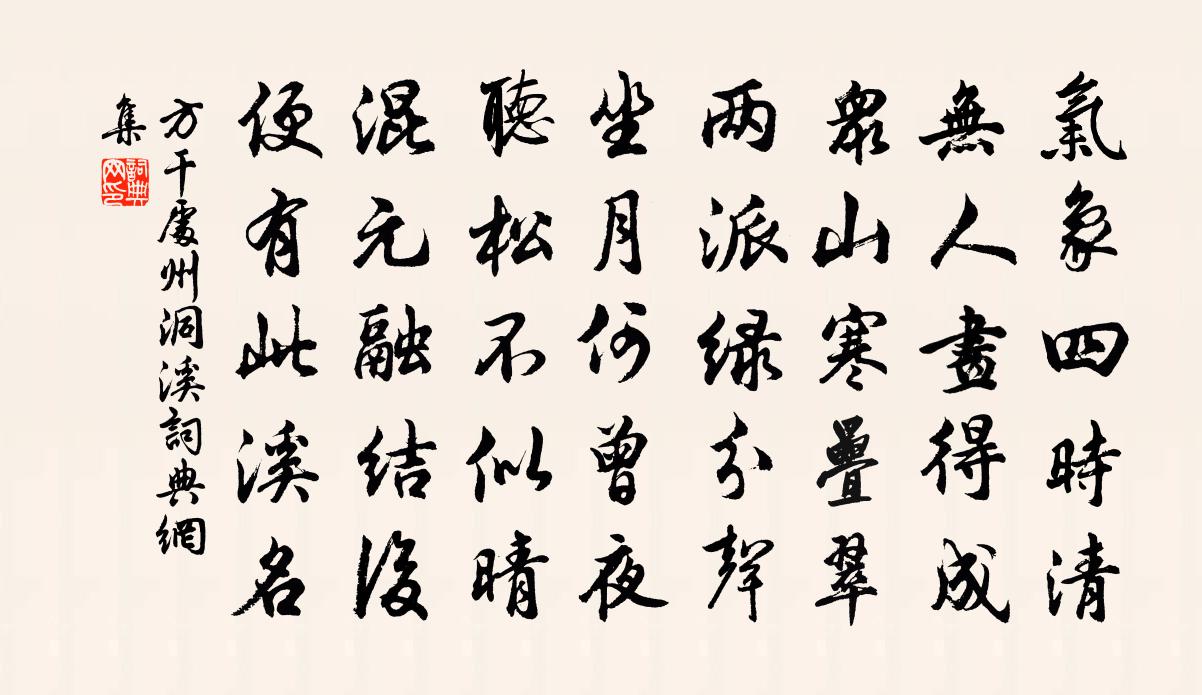 氣象四時清
無人畫得成
衆山寒疊翠
两派绿分聲
坐月何曾夜
聽松不似晴
混元融结後
便有此溪名
方干處州洞溪詞典網
集
詞典
网印